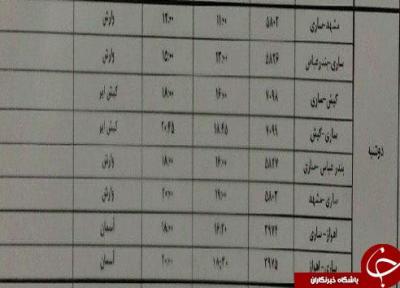 دوشنبه
مشهد-ساری ۵۸۰۲ ۱۱:۰۰ ۱۲:۰۰ وارش
ساری-بندرعباس ۵۸۲۶ ۱۳:۰۰ ۱۵:۰۰ وارش
کیش-ساری ۷۰۹۸ ۱۶:۰۰ ۱۸:۰۰ کیش ایر
ساری-کیش ۷۰۹۹ ۱۸:۴۵ ۲۰:۴۵ کیش ایر
بندر عباس-ساری ۵۸۲۷ ۱۶:۰۰ ۱۸:۰۰ وارش
ساری-مشهد ۵۸۰۳ ۱۹:۰۰ ۲۰:۰۰ وارش
اهواز-ساری ۳۹۷۴ ۱۶:۲۰ ۱۸:۰۰ آسمان
ساری-اهواز ۳۹۷۵ ۱۸:۳۰ ۲۰:۰۰ آسمان
باشگاه خبرنگاران